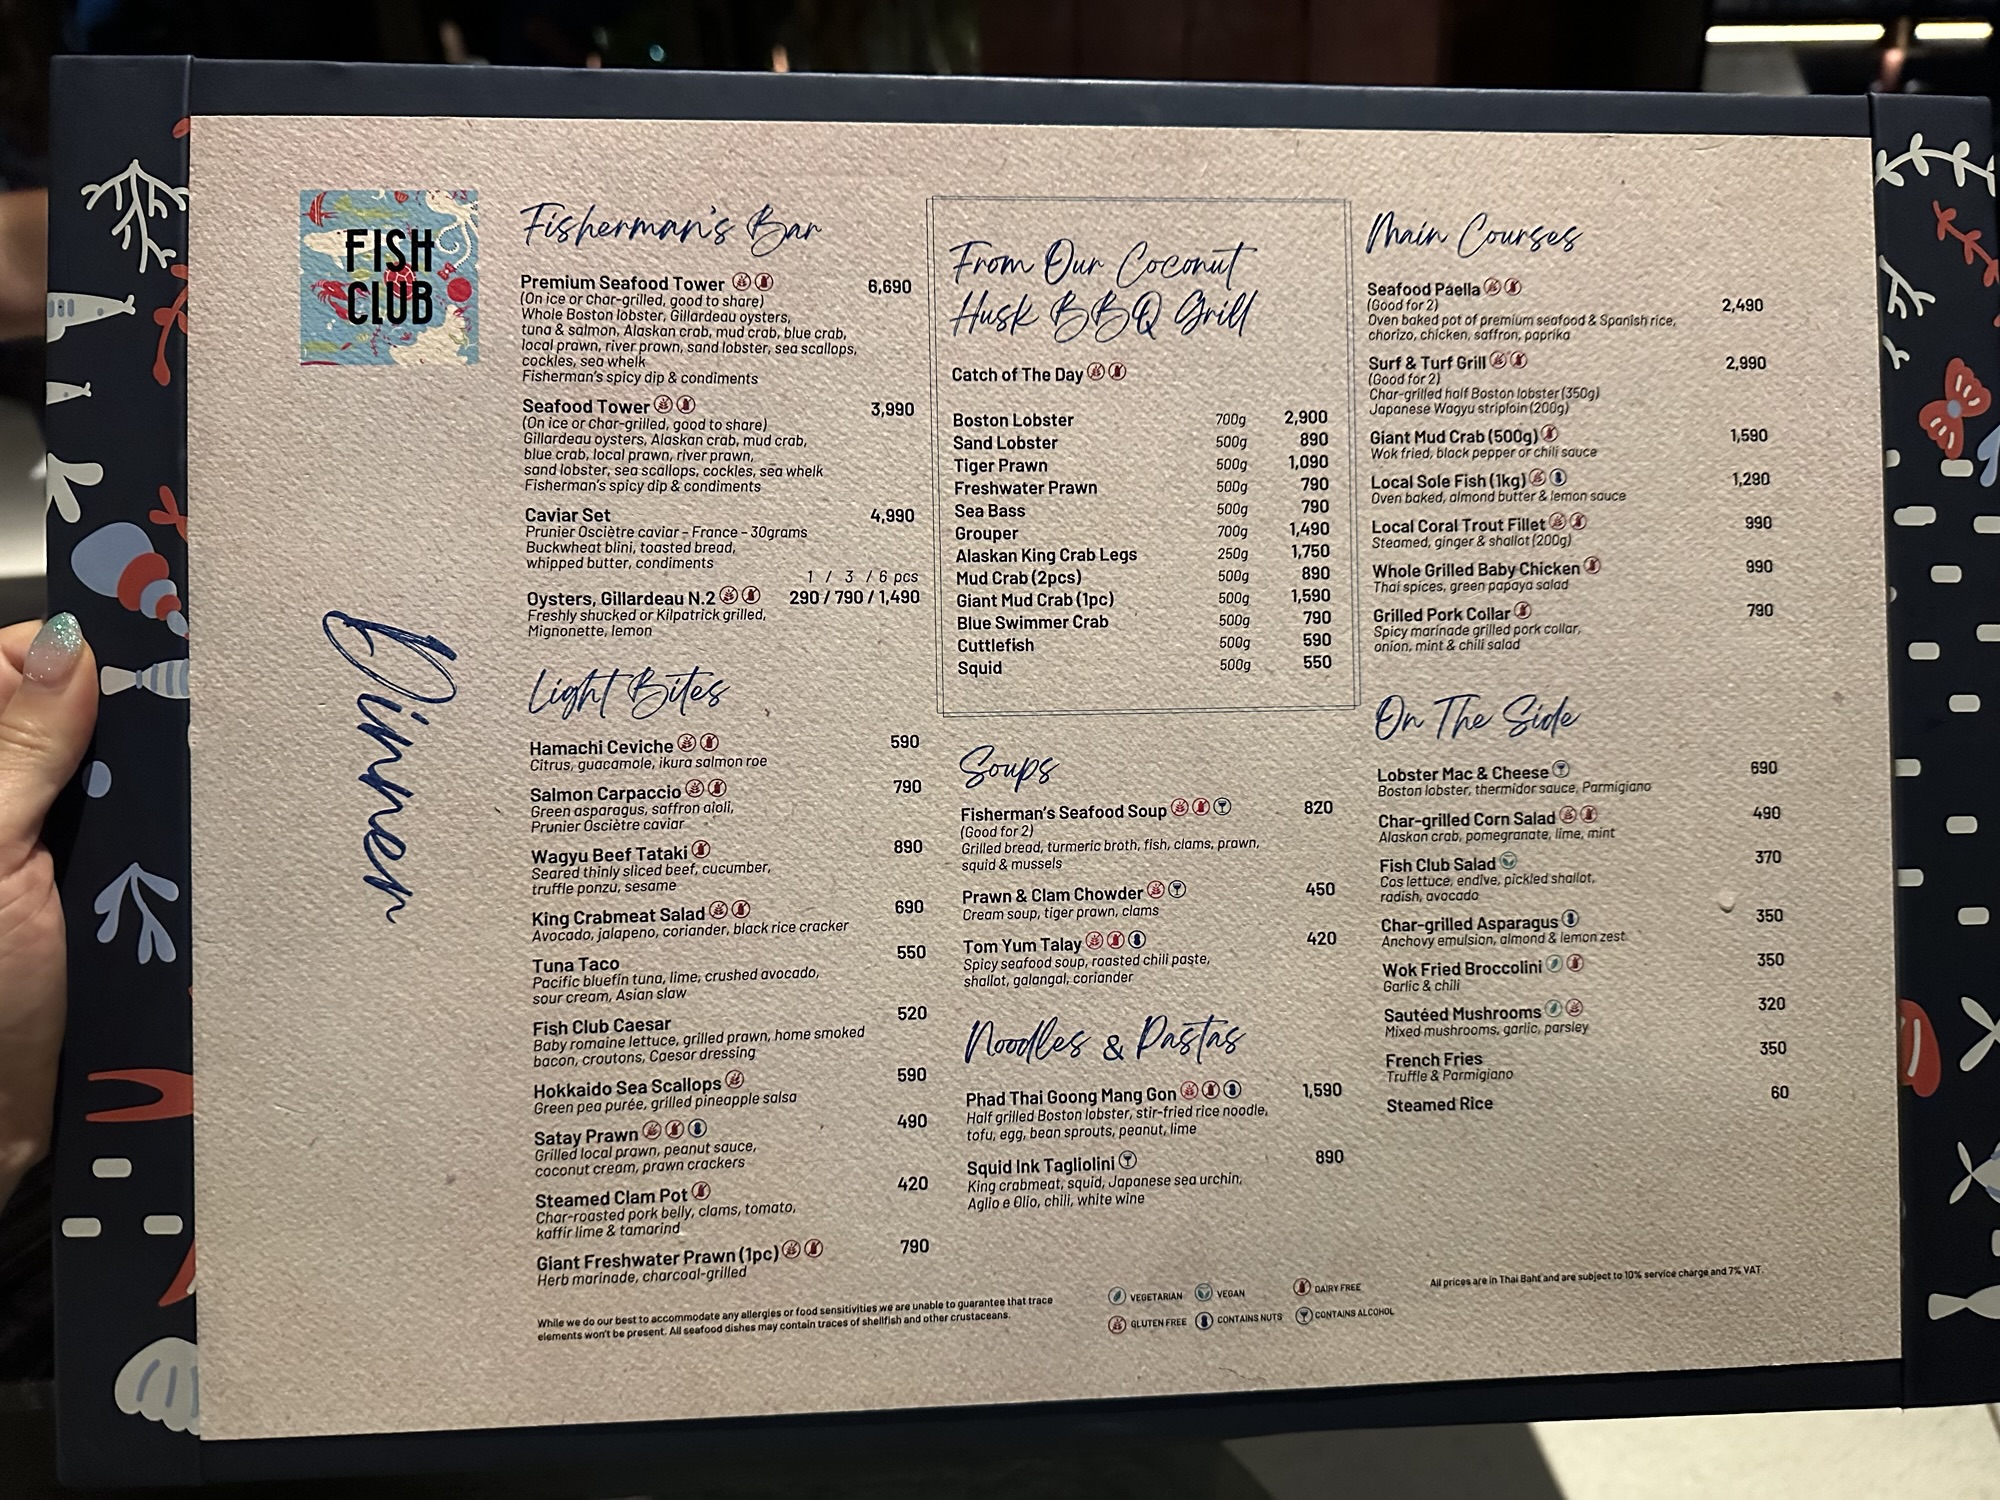 FISH
CLUB
Dinner
Fisherman's Bar
Premium Seafood Tower 6,690
(On ice or char-grilled, good to share)
Whole Boston lobster, Gillardeau oysters,
tuna & salmon, Alaskan crab, mud crab, blue crab,
local prawn, river prawn, sand lobster, sea scallops,
cockles, sea whelk
Fisherman's spicy dip & condiments
Seafood Tower 3,990
(On ice or char-grilled, good to share)
Gillardeau oysters, Alaskan crab, mud crab,
blue crab, local prawn, river prawn,
sand lobster, sea scallops, cockles, sea whelk
Fisherman's spicy dip & condiments
Caviar Set 4,990
Prunier Osciètre caviar – France – 30grams
Buckwheat blini, toasted bread,
whipped butter, condiments
1 / 3 / 6 pcs
Oysters, Gillardeau N.2 290 / 790 / 1,490
Freshly shucked or Kilpatrick grilled,
Mignonette, lemon
Light Bites
Hamachi Ceviche 590
Citrus, guacamole, ikura salmon roe
Salmon Carpaccio 790
Green asparagus, saffron aioli,
Prunier Osciètre caviar
Wagyu Beef Tataki 890
Seared thinly sliced beef, cucumber,
truffle ponzu, sesame
King Crabmeat Salad 690
Avocado, jalapeno, coriander, black rice cracker
Tuna Taco 550
Pacific bluefin tuna, lime, crushed avocado,
sour cream, Asian slaw
Fish Club Caesar 520
Baby romaine lettuce, grilled prawn, home smoked
bacon, croutons, Caesar dressing
Hokkaido Sea Scallops 590
Green pea purée, grilled pineapple salsa
Satay Prawn 490
Grilled local prawn, peanut sauce,
coconut cream, prawn crackers
Steamed Clam Pot 420
Char-roasted pork belly, clams, tomato,
kaffir lime & tamarind
Giant Freshwater Prawn (1pc) 790
Herb marinade, charcoal-grilled
From Our Coconut
Husk BBQ Grill
Catch of The Day
Boston Lobster 700g 2,900
Sand Lobster 500g 890
Tiger Prawn 500g 1,090
Freshwater Prawn 500g 790
Sea Bass 500g 790
Grouper 700g 1,490
Alaskan King Crab Legs 250g 1,750
Mud Crab (2pcs) 500g 890
Giant Mud Crab (1pc) 500g 1,590
Blue Swimmer Crab 500g 790
Cuttlefish 500g 590
Squid 500g 550
Soups
Fisherman's Seafood Soup 820
(Good for 2)
Grilled bread, turmeric broth, fish, clams, prawn,
squid & mussels
Prawn & Clam Chowder 450
Cream soup, tiger prawn, clams
Tom Yum Talay 420
Spicy seafood soup, roasted chili paste,
shallot, galangal, coriander
Noodles & Pastas
Phad Thai Goong Mang Gon 1,590
Half grilled Boston lobster, stir-fried rice noodle,
tofu, egg, bean sprouts, peanut, lime
Squid Ink Tagliolini 890
King crabmeat, squid, Japanese sea urchin,
Aglio e Olio, chili, white wine
Main Courses
Seafood Paella
(Good for 2) 2,490
Oven baked pot of premium seafood & Spanish rice,
chorizo, chicken, saffron, paprika
Surf & Turf Grill 2,990
(Good for 2)
Char-grilled half Boston lobster (350g)
Japanese Wagyu striploin (200g)
Giant Mud Crab (500g) 1,590
Wok fried, black pepper or chili sauce
Local Sole Fish (1kg) 1,290
Oven baked, almond butter & lemon sauce
Local Coral Trout Fillet 990
Steamed, ginger & shallot (200g)
Whole Grilled Baby Chicken 990
Thai spices, green papaya salad
Grilled Pork Collar 790
Spicy marinade grilled pork collar,
onion, mint & chili salad
On The Side
Lobster Mac & Cheese 690
Boston lobster, thermidor sauce, Parmigiano
Char-grilled Corn Salad 490
Alaskan crab, pomegranate, lime, mint
Fish Club Salad 370
Cos lettuce, endive, pickled shallot,
radish, avocado
Char-grilled Asparagus 350
Anchovy emulsion, almond & lemon zest
Wok Fried Broccolini 350
Garlic & chili
Sautéed Mushrooms 320
Mixed mushrooms, garlic, parsley
French Fries 350
Truffle & Parmigiano
Steamed Rice 60
While we do our best to accommodate any allergies or food sensitivities we are unable to guarantee that trace
elements won't be present. All seafood dishes may contain traces of shellfish and other crustaceans.
VEGETARIAN VEGAN DAIRY FREE
GLUTEN FREE CONTAINS NUTS CONTAINS ALCOHOL
All prices are in Thai Baht and are subject to 10% service charge and 7% VAT.